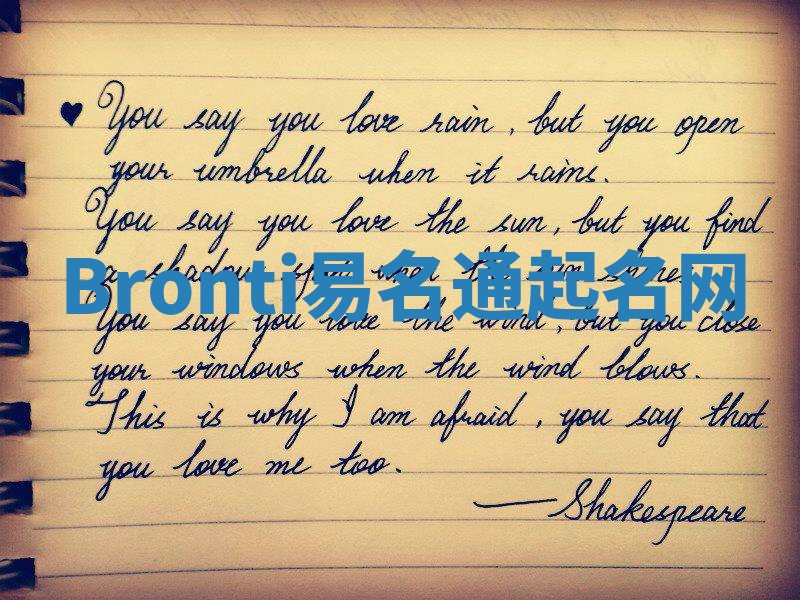 You say you love rain, but you open
your umbrella when it rains.
You say you love the sun, but you find
a shadow spot when the sun shines.
Bronti易名通起名网
You say you love the wind, but you close
your windows when the wind blows.
This is why I am afraid, you say that
you love me too.
—Shakespeare